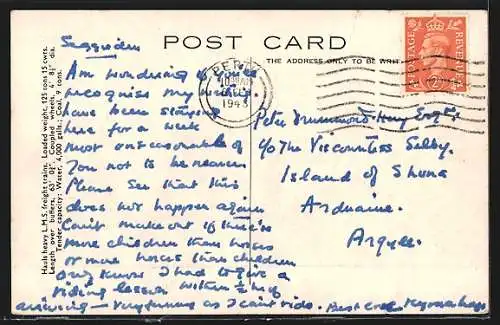 Seggieden
POST CARD
THE ADDRESS ONLY TO BE WRIT
PERTH
1943
POSTAGE REVENUE
Hauls heavy L.M.S. freight trains. Loaded weight, 125 tons 15 cwts.
Length over buffers, 63' 0¾". Coupled wheels, 4' 8½" dia.
Tender capacity: Water, 4,000 galls.; Coal, 9 tons.
Am wondering if you
recognise my
have been staying
here for a week
most unseasonable of
you not to be nearer
Please see that this
does not happen again
Can't make out if there's
more children than horses
or more horses than children
only know I had to give a
riding lesson within ½ hr of
arriving – very funny as I can't ride. Best love
Peter Drummond-Hay Esq
c/o The Viscountess Selby.
Island of Shuna
Arduaine.
Argyll.